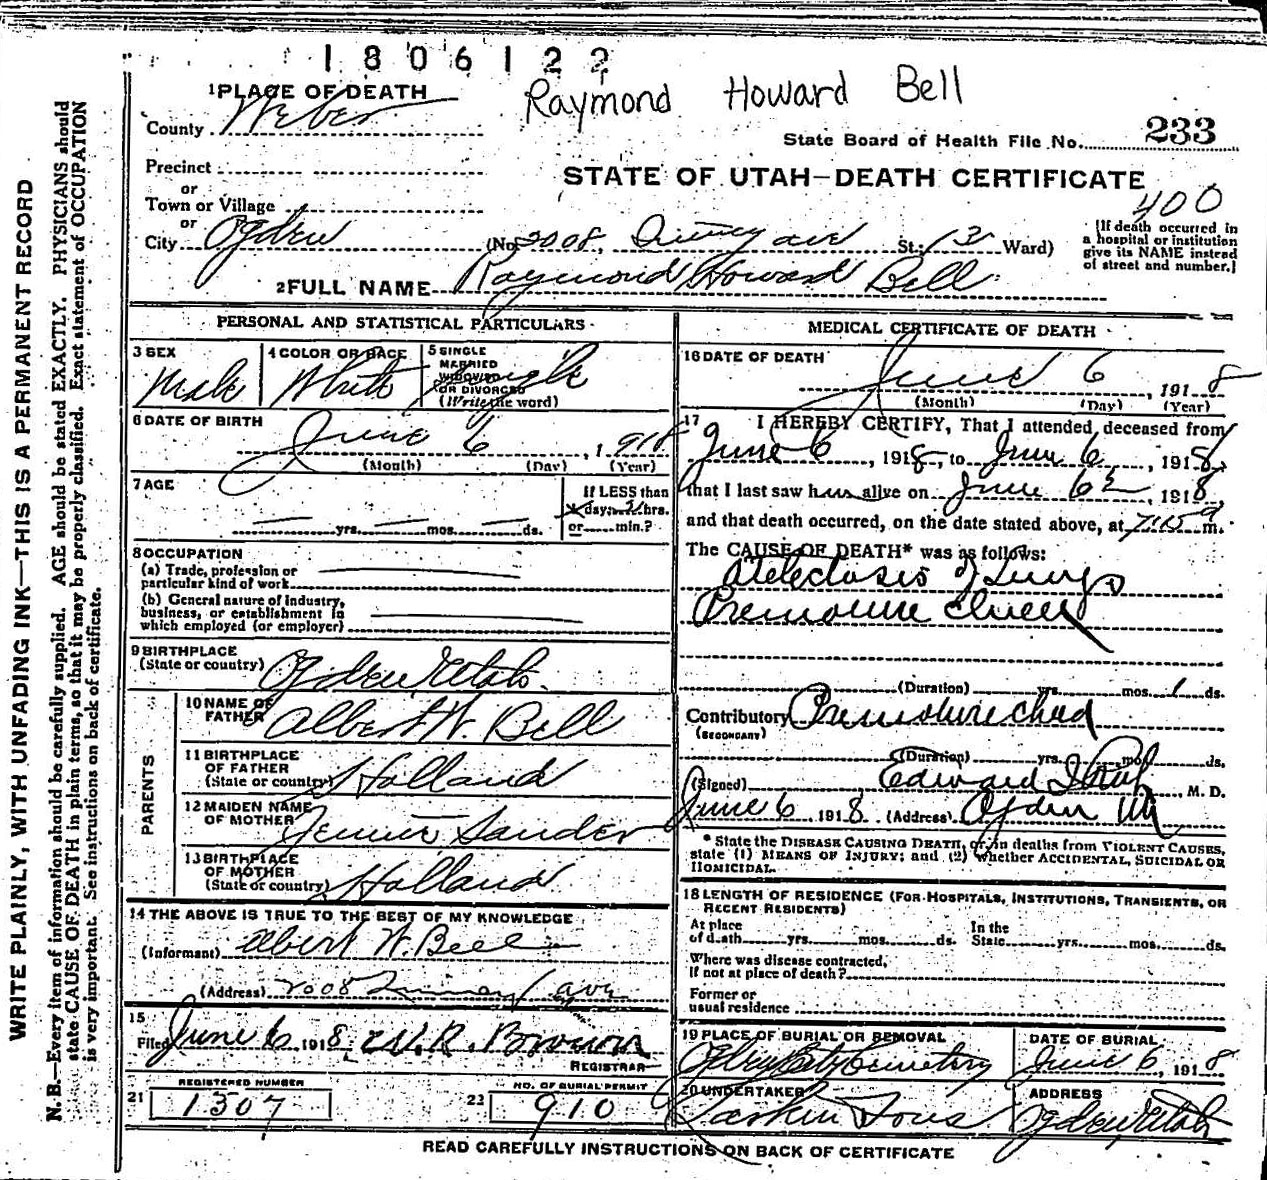 1806122
Raymond Howard Bell
1 PLACE OF DEATH
County Weber
State Board of Health File No. 233
Precinct
or
STATE OF UTAH—DEATH CERTIFICATE
400
Town or Village
or
City Ogden (No. 2008, Quincy ave St.; Ward)
[If death occurred in
a hospital or institution
give its NAME instead
of street and number.]
2 FULL NAME Raymond Howard Bell
PERSONAL AND STATISTICAL PARTICULARS
3 SEX Male
4 COLOR OR RACE White
5 SINGLE
MARRIED
WIDOWED
OR DIVORCED
(Write the word) Single
6 DATE OF BIRTH June 6, 1918
(Month) (Day) (Year)
7 AGE
If LESS than
day, hrs.
yrs. mos. ds. or min.?
8 OCCUPATION
(a) Trade, profession or
particular kind of work
(b) General nature of industry,
business, or establishment in
which employed (or employer)
9 BIRTHPLACE
(State or country) Ogden Utah
PARENTS
10 NAME OF
FATHER Albert W. Bell
11 BIRTHPLACE
OF FATHER
(State or country) Holland
12 MAIDEN NAME
OF MOTHER Jennie Sander
13 BIRTHPLACE
OF MOTHER
(State or country) Holland
14 THE ABOVE IS TRUE TO THE BEST OF MY KNOWLEDGE
(Informant) Albert W. Bell
(Address) 2008 Quincy ave
15
Filed June 6, 1918, W. R. Brown
REGISTRAR
REGISTERED NUMBER
21 1307
NO. OF BURIAL PERMIT
22 910
MEDICAL CERTIFICATE OF DEATH
16 DATE OF DEATH
June 6, 1918
(Month) (Day) (Year)
17 I HEREBY CERTIFY, That I attended deceased from
June 6, 1918, to June 6, 1918,
that I last saw him alive on June 6, 1918,
and that death occurred, on the date stated above, at 7:15 a m.
The CAUSE OF DEATH* was as follows:
Atelectasis of Lungs
Premature
(Duration) yrs. mos. 1 ds.
Contributory Premature child
(SECONDARY)
(Duration) yrs. mos. ds.
(Signed) Edward I. , M. D.
June 6, 1918. (Address) Ogden Ut
* State the DISEASE CAUSING DEATH, or in deaths from VIOLENT CAUSES,
state (1) MEANS OF INJURY; and (2) whether ACCIDENTAL, SUICIDAL OR
HOMICIDAL.
18 LENGTH OF RESIDENCE (FOR HOSPITALS, INSTITUTIONS, TRANSIENTS, OR
RECENT RESIDENTS)
At place
of death yrs. mos. ds.
In the
State yrs. mos. ds.
Where was disease contracted,
If not at place of death?
Former or
usual residence
19 PLACE OF BURIAL OR REMOVAL
Ogden City Cemetery
DATE OF BURIAL
June 6, 1918
20 UNDERTAKER
Larkin Sons
ADDRESS
Ogden, Utah
READ CAREFULLY INSTRUCTIONS ON BACK OF CERTIFICATE
WRITE PLAINLY, WITH UNFADING INK—THIS IS A PERMANENT RECORD
N. B.—Every item of information should be carefully supplied. AGE should be stated EXACTLY. PHYSICIANS should
state CAUSE OF DEATH in plain terms, so that it may be properly classified. Exact statement of OCCUPATION
is very important. See instructions on back of certificate.